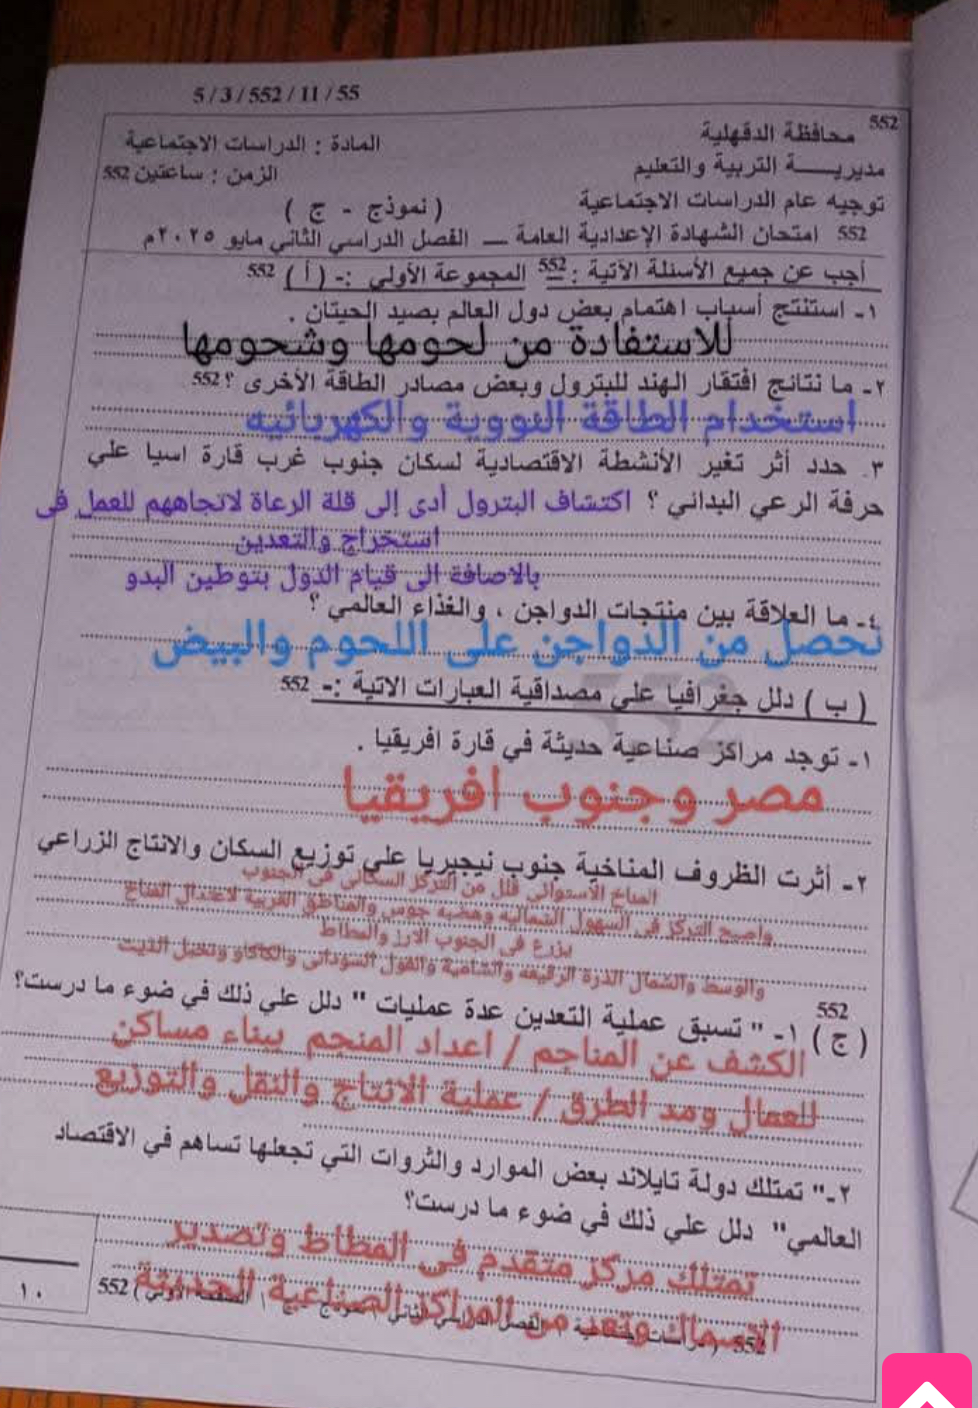 5 / 3 / 552 / 11 / 55
552 محافظة الدقهلية
المادة : الدراسات الاجتماعية
مديريـــــة التربية والتعليم
الزمن : ساعتين 552
توجيه عام الدراسات الاجتماعية
( نموذج - ج )
552 امتحان الشهادة الإعدادية العامة ـــ الفصل الدراسي الثاني مايو ٢٠٢٥م
أجب عن جميع الأسئلة الآتية : 552 المجموعة الأولي :- ( أ ) 552
١- استنتج أسباب اهتمام بعض دول العالم بصيد الحيتان .
للاستفادة من لحومها وشحومها
٢- ما نتائج افتقار الهند للبترول وبعض مصادر الطاقة الأخرى ؟ 552
استخدام الطاقة النووية والكهربائيه
٣. حدد أثر تغير الأنشطة الاقتصادية لسكان جنوب غرب قارة اسيا علي
حرفة الرعي البدائي ؟ اكتشاف البترول أدى إلى قلة الرعاة لاتجاههم للعمل فى
استخراج والتعدين
بالاضافة الى قيام الدول بتوطين البدو
٤- ما العلاقة بين منتجات الدواجن ، والغذاء العالمي ؟
نحصل من الدواجن على اللحوم والبيض
( ب ) دلل جغرافيا علي مصداقية العبارات الاتية :- 552
552
١- توجد مراكز صناعية حديثة في قارة افريقيا .
مصر وجنوب افريقيا
٢- أثرت الظروف المناخية جنوب نيجيريا علي توزيع السكان والانتاج الزراعي
المناخ الاستوائى قلل من التركز السكانى فى الجنوب
واصبح التركز فى السهول الشماليه وهضبه جوس والمناطق الغربية لاعتدال المناخ
يزرع فى الجنوب الارز والمطاط
والوسط والشمال الذرة الرفيعه والشامية والفول السودانى والكاكاو ونخيل الذيت
552
( ج ) ١- " تسبق عملية التعدين عدة عمليات " دلل علي ذلك في ضوء ما درست؟
الكشف عن المناجم / اعداد المنجم ببناء مساكن
للعمال ومد الطرق / عملية الانتاج والنقل والتوزيع
٢-" تمتلك دولة تايلاند بعض الموارد والثروات التي تجعلها تساهم في الاقتصاد
العالمي" دلل علي ذلك في ضوء ما درست؟
تمتلك مركز متقدم فى المطاط وتصدير
الاسماك وتعد من المراكز الصناعية الحديثة
552
552
١٠